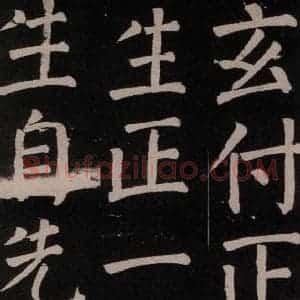 玄付正
生正一
生自先
Shufaziliao.COM